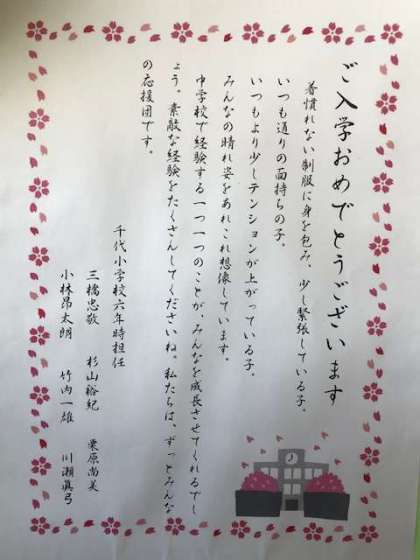 ご入学おめでとうございます
着慣れない制服に身を包み、少し緊張している子。
いつも通りの面持ちの子。
いつもより少しテンションが上がっている子。
みんなの晴れ姿をあれこれ想像しています。
中学校で経験する一つ一つのことが、みんなを成長させてくれるでし
ょう。素敵な経験をたくさんしてくださいね。私たちは、ずっとみんな
の応援団です。
千代小学校六年時担任
三橋忠敬 杉山裕紀 栗原尚美
小林昂太朗 竹内一雄 川瀬眞弓